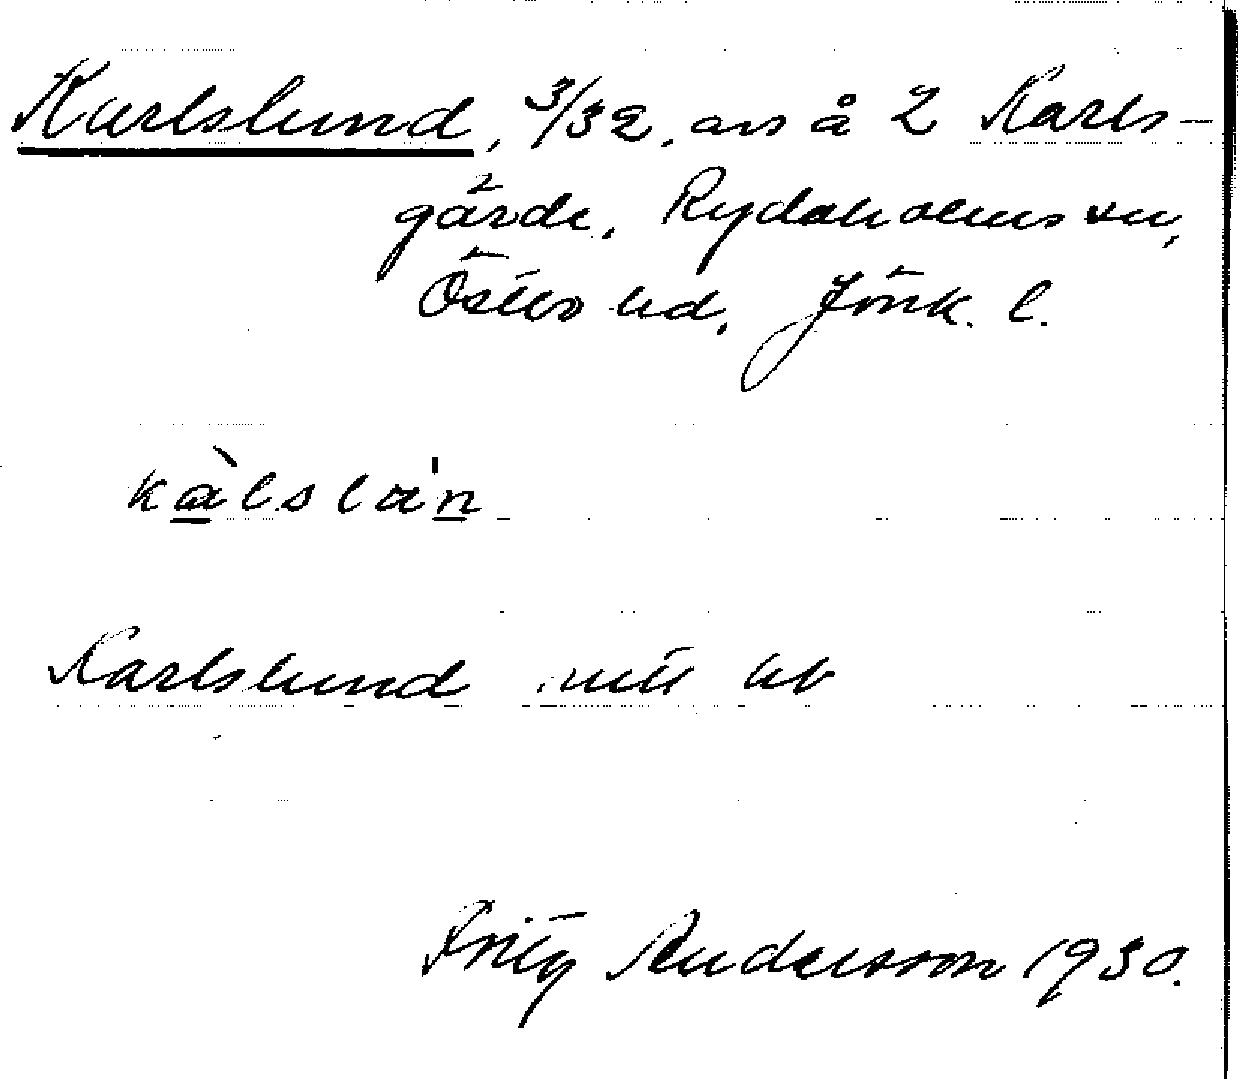 Karlslund, 3/32, avs å 2 Karls-
gärde, Rydaholms sn,
Östbo hd, Jönk. l.
kàlslan
Karlslund mtl kb
Fritz Andersson 1930.